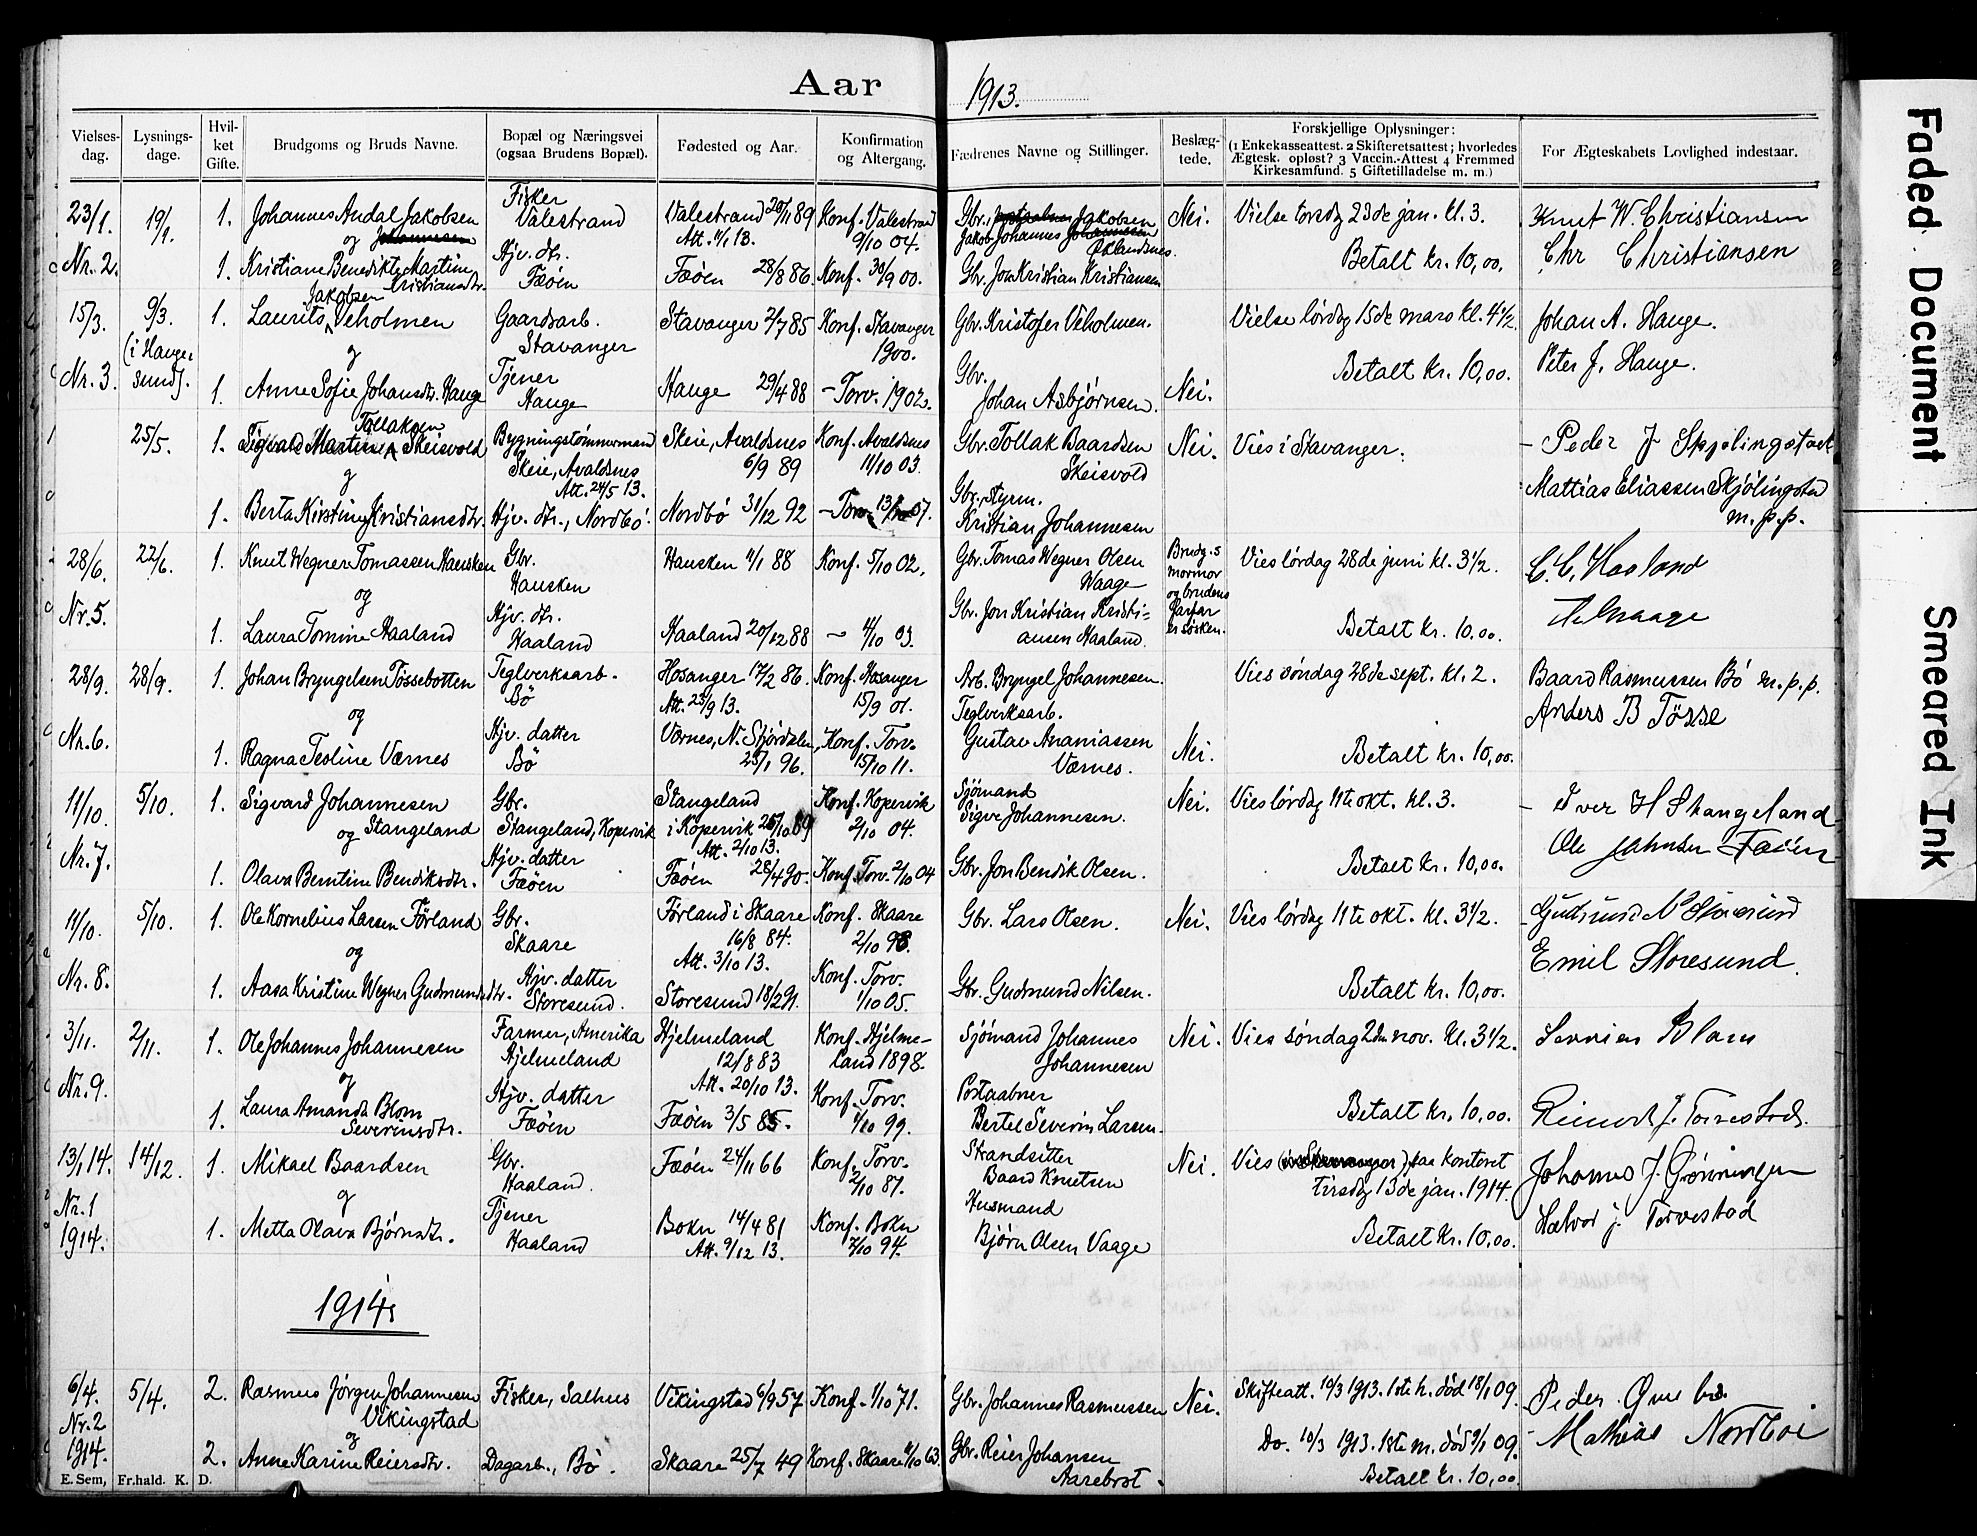 Aar 1913.
Vielses-dag. Lysnings-dage. Hvil-ket Gifte. Brudgoms og Bruds Navne. Bopæl og Næringsvei (ogsaa Brudens Bopæl). Fødested og Aar. Konfirmation og Altergang. Fædrenes Navne og Stillinger. Beslæg-tede. Forskjellige Oplysninger: (1 Enkekasseattest. 2 Skifteretsattest; hvorledes Ægtesk. opløst? 3 Vaccin.-Attest 4 Fremmed Kirkesamfund. 5 Giftetilladelse m. m.) For Ægteskabets Lovlighed indestaar.
23/1. 19/1. 1. Johannes Andal Jakobsen Fisker Valestrand Valestrand 20/11 89 Konf. Valestrand Gbr. Jakobsen Nei. Vielse torsdag 23de jan. kl. 3. Knut W. Christiansen
og Att. 11/1 13. 9/10 04. Jakob Johannes Øklandsnes. Betalt kr. 10,00. Chr Christiansen
Nr. 2. 1. Kristiane Benedikte Martine Kristiansdtr. Hjv. dtr. Fæøen Fæøen 28/8 86 Konf. 30/9 00. Gbr. Jon Kristian Kristiansen
15/3. 9/3. 1. Laurits Jakobsen Veholmen Gaardsarb. Stavanger Stavanger 2/7 85 Konf. Stavanger 1900. Gbr. Kristofer Veholmen. Vielse lørdag 15de mars kl. 4 1/2. Johan A. Hauge.
(i Haugesund). og Betalt kr. 10,00. Peter J. Hauge.
Nr. 3. 1. Anne Sofie Johansdtr. Hauge Tjener Hauge Hauge 29/4 88 – Torv. 1902. Gbr. Johan Asbjørnsen. Nei.
25/5. 1. Sigvald Martin Tollaksen Skeisvold Bygningstømmermand Skeie, Avaldsnes Skeie, Avaldsnes Konf. Avaldsnes Gbr. Tollak Baardsen Skeisvold Nei. Vies i Stavanger. – Peder J Skjølingstad
og Att. 24/5 13. 6/9 89 11/10 03. Mattias Eliassen Skjölingstad m.p.p.
1. Berta Kirstine Kristiansdtr. Hjv. dtr., Nordbö. Nordbö 31/12 92 – Torv. 07. Gbr., styrm. Kristian Johannesen
28/6. 22/6. 1. Knut Wegner Tomassen Hausken Gbr. Hausken Hausken 11/1 88 Konf. 5/10 02. Gbr. Tomas Wegner Olsen Waage Brudg.s mormor og brudens farfar er søsken. Vies lördag 28de juni kl. 3 1/2. C. C. Haaland
og
Nr. 5. 1. Laura Tomine Haaland Hjv. dtr. Haaland Haaland 20/12 88 – 4/10 03. Gbr. Jon Kristian Kristiansen Haaland. Betalt kr. 10,00.
28/9. 28/9. 1. Johan Bryngelsen Tössebotten Teglverksarb. Bö Hosanger 17/2 86. Konf. Hosanger 15/9 01. Arb. Bryngel Johannesen. Vies söndag 28de sept. kl. 2. Baard Rasmussen Bö m.p.p.
og Att. 23/9 13. Anders B Tösse
Nr. 6. 1. Ragna Tesline Værnes Hjv. datter Bö Værnes, N. Stjørdalen, 25/1 96. Konf. Torv. 15/10 11. Teglverksarb. Gustav Ananiassen Værnes. Nei. Betalt kr. 10,00.
11/10. 5/10. 1. Sigvard Johannesen Stangeland Gbr. Stangeland, Kopervik Stangeland i Kopervik 26/10 89 Konf. Kopervik 2/10 04. Sjömand Sigve Johannesen. Nei. Vies lördag 11te okt. kl. 3. – Iver H Stangeland
og Att. 2/10 13. Ole Johnsen Fæöen
Nr. 7. 1. Olava Berntine Bendiksdtr. Hjv. datter Fæöen Fæöen 28/4 90. Konf. Torv. 2/10 04 Gbr. Jon Bendik Olsen. Betalt kr. 10,00.
11/10. 5/10. 1. Ole Kornelius Larsen Førland Gbr. Skaare Førland i Skaare 16/8 84. Konf. Skaare 2/10 98. Gbr. Lars Olsen. Nei. Vies lördag 11te okt. kl. 3 1/2. Gudmund N Storesund
og Att. 3/10 13. Emil Storesund.
Nr. 8. 1. Aasa Kristine Wegner Gudmundsdtr. Hjv. datter Storesund. Storesund 18/2 91. Konf. Torv. 1/10 05. Gbr. Gudmund Nilsen. Betalt kr. 10,00.
3/11. 2/11. 1. Ole Johannes Johannesen Farmer, Amerika Hjelmeland Hjelmeland 12/8 83 Konf. Hjelmeland 1898. Sjömand Johannes Johannesen Nei. Vies söndag 2den nov. kl. 3 1/2. Blom
og Att. 20/10 13.
Nr. 9. 1. Laura Amanda Blom Severinsdtr. Hjv. datter Fæöen Fæöen 3/5 85. Konf. Torv. 1/10 99. Postaabner Bertel Severin Larsen. Betalt kr. 10,00. Reinert J. Torvestad.
13/1 14. 14/12. 1. Mikael Baardsen Gbr. Haaland. Fæöen 24/11 66 Konf. Torv. 2/10 81. Strandsitter Baard Knutsen Nei. Vies paa kontoret tirsdag 13de jan. 1914. Johannes J. Grönningen
og
Nr. 1 1914. 1. Metta Olava Bjørnsdtr. Tjener Haaland Bokn 14/4 81 Att. 9/12 13. Konf. Bokn 7/10 94. Husmand Björn Olsen Vaage Betalt kr. 10,00. Halvor J. Torvestad
1914.
6/4. 5/4. 2. Rasmus Jørgen Johannesen Vikingstad Fisker, Salhus Vikingstad 6/9 57 Konf. 1/10 71. Gbr. Johannes Rasmussen Nei. Skifteatt. 10/3 1913. 1ste h. död 18/1 09. Peder
Nr. 2 1914. og
2. Anne Karine Reiersdtr. Dagarb., Bö. Skaare 25/7 49 Konf. Skaare 4/10 63. Gbr. Reier Johansen Aarebrot. Do. 10/3 1913. 1ste m. död 9/1 09. Mathias Nordboe
Betalt kr. 10,00
E. Sem, Fr.hald. K. D.
Faded Document
Smeared Ink